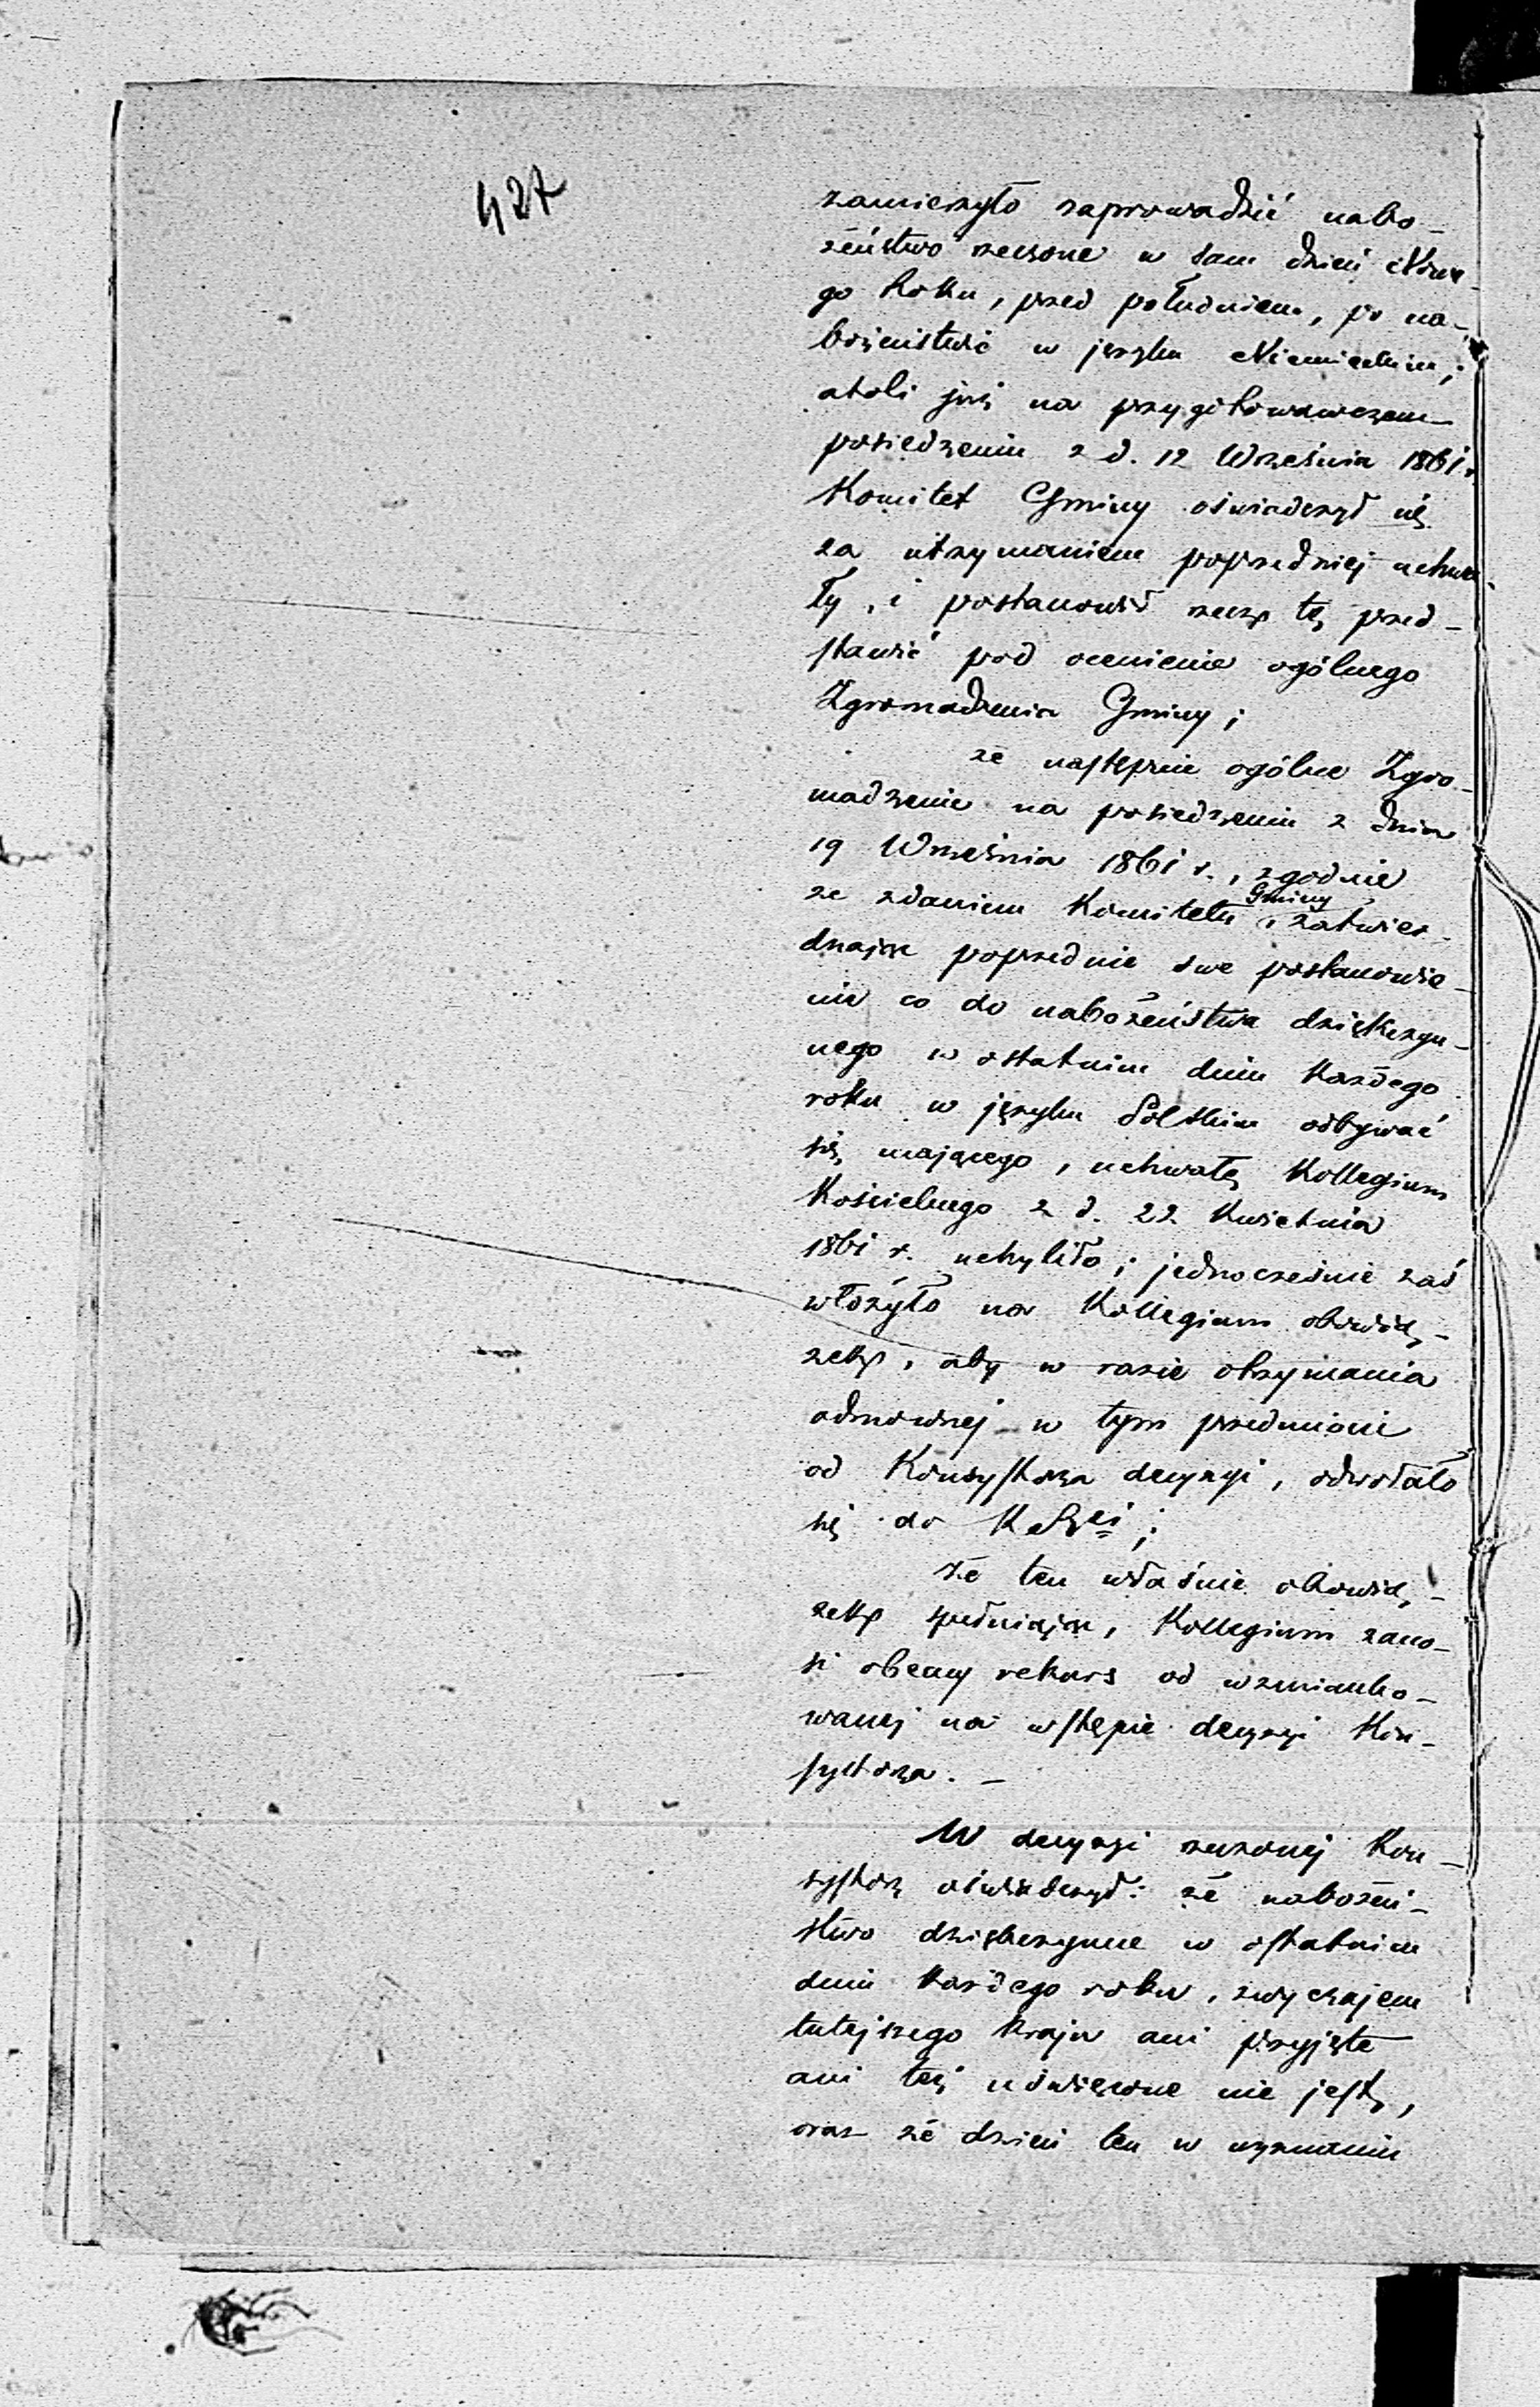 427
zamierzyło zaprowadzić nabo-
żeństwo rzeczone w sam dzień Nowe-
go Roku, przed południem, po na-
bożeństwie w języku Niemieckim;
atoli już na przygotowawczem
posiedzeniu z d. 12 Września 1861 r.
Komitet Gminy oświadczył się
za utrzymaniem poprzedniej uchwa-
ły, i postanowił rzecz tę przed-
stawić pod ocenienie ogólnego
Zgromadzenia Gminy;
że następnie ogólne Zgro-
madzenie na posiedzeniu z dnia
19 Września 1861 r., zgodnie
ze zdaniem Komitetu Gminy, zatwier-
dzając poprzednie swe postanowie-
nie co do nabożeństwa dziękczyn-
nego w ostatnim dniu każdego
roku w języku Polskim odbywać
się mającego, uchwałę Kollegium
Kościelnego z d. 22 Kwietnia
1861 r. uchyliło; jednocześnie zaś
włożyło na Kollegium obowią-
zek, aby w razie otrzymania
odmownej w tym przedmiocie
od Konsystorza decyzyi, odwołało
się do
że ten właśnie obowią-
zek spełniając, Kollegium zano-
si obecny rekurs od wzmianko-
wanej na wstępie decyzyi Kon-
systorza. -
W decyzyi rzeczonej Kon-
systorz oświadczył: że nabożeń-
stwo dziękczynne w ostatnim
dniu każdego roku, zwyczajem
tutejszego kraju ani przyjęte
ani też uświęcone nie jest,
oraz że dzień ten w wyznaniu